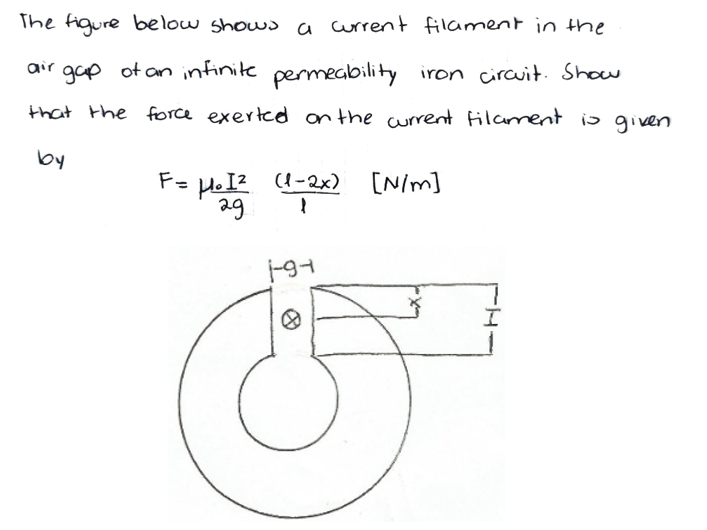 The figure below shows a current filament in the
air gap of an infinite permeability iron circuit. Show
that the force exerted on the current filament is given
by
F = μ₀I² (l-2x) [N/m]
2g l
g
x
l